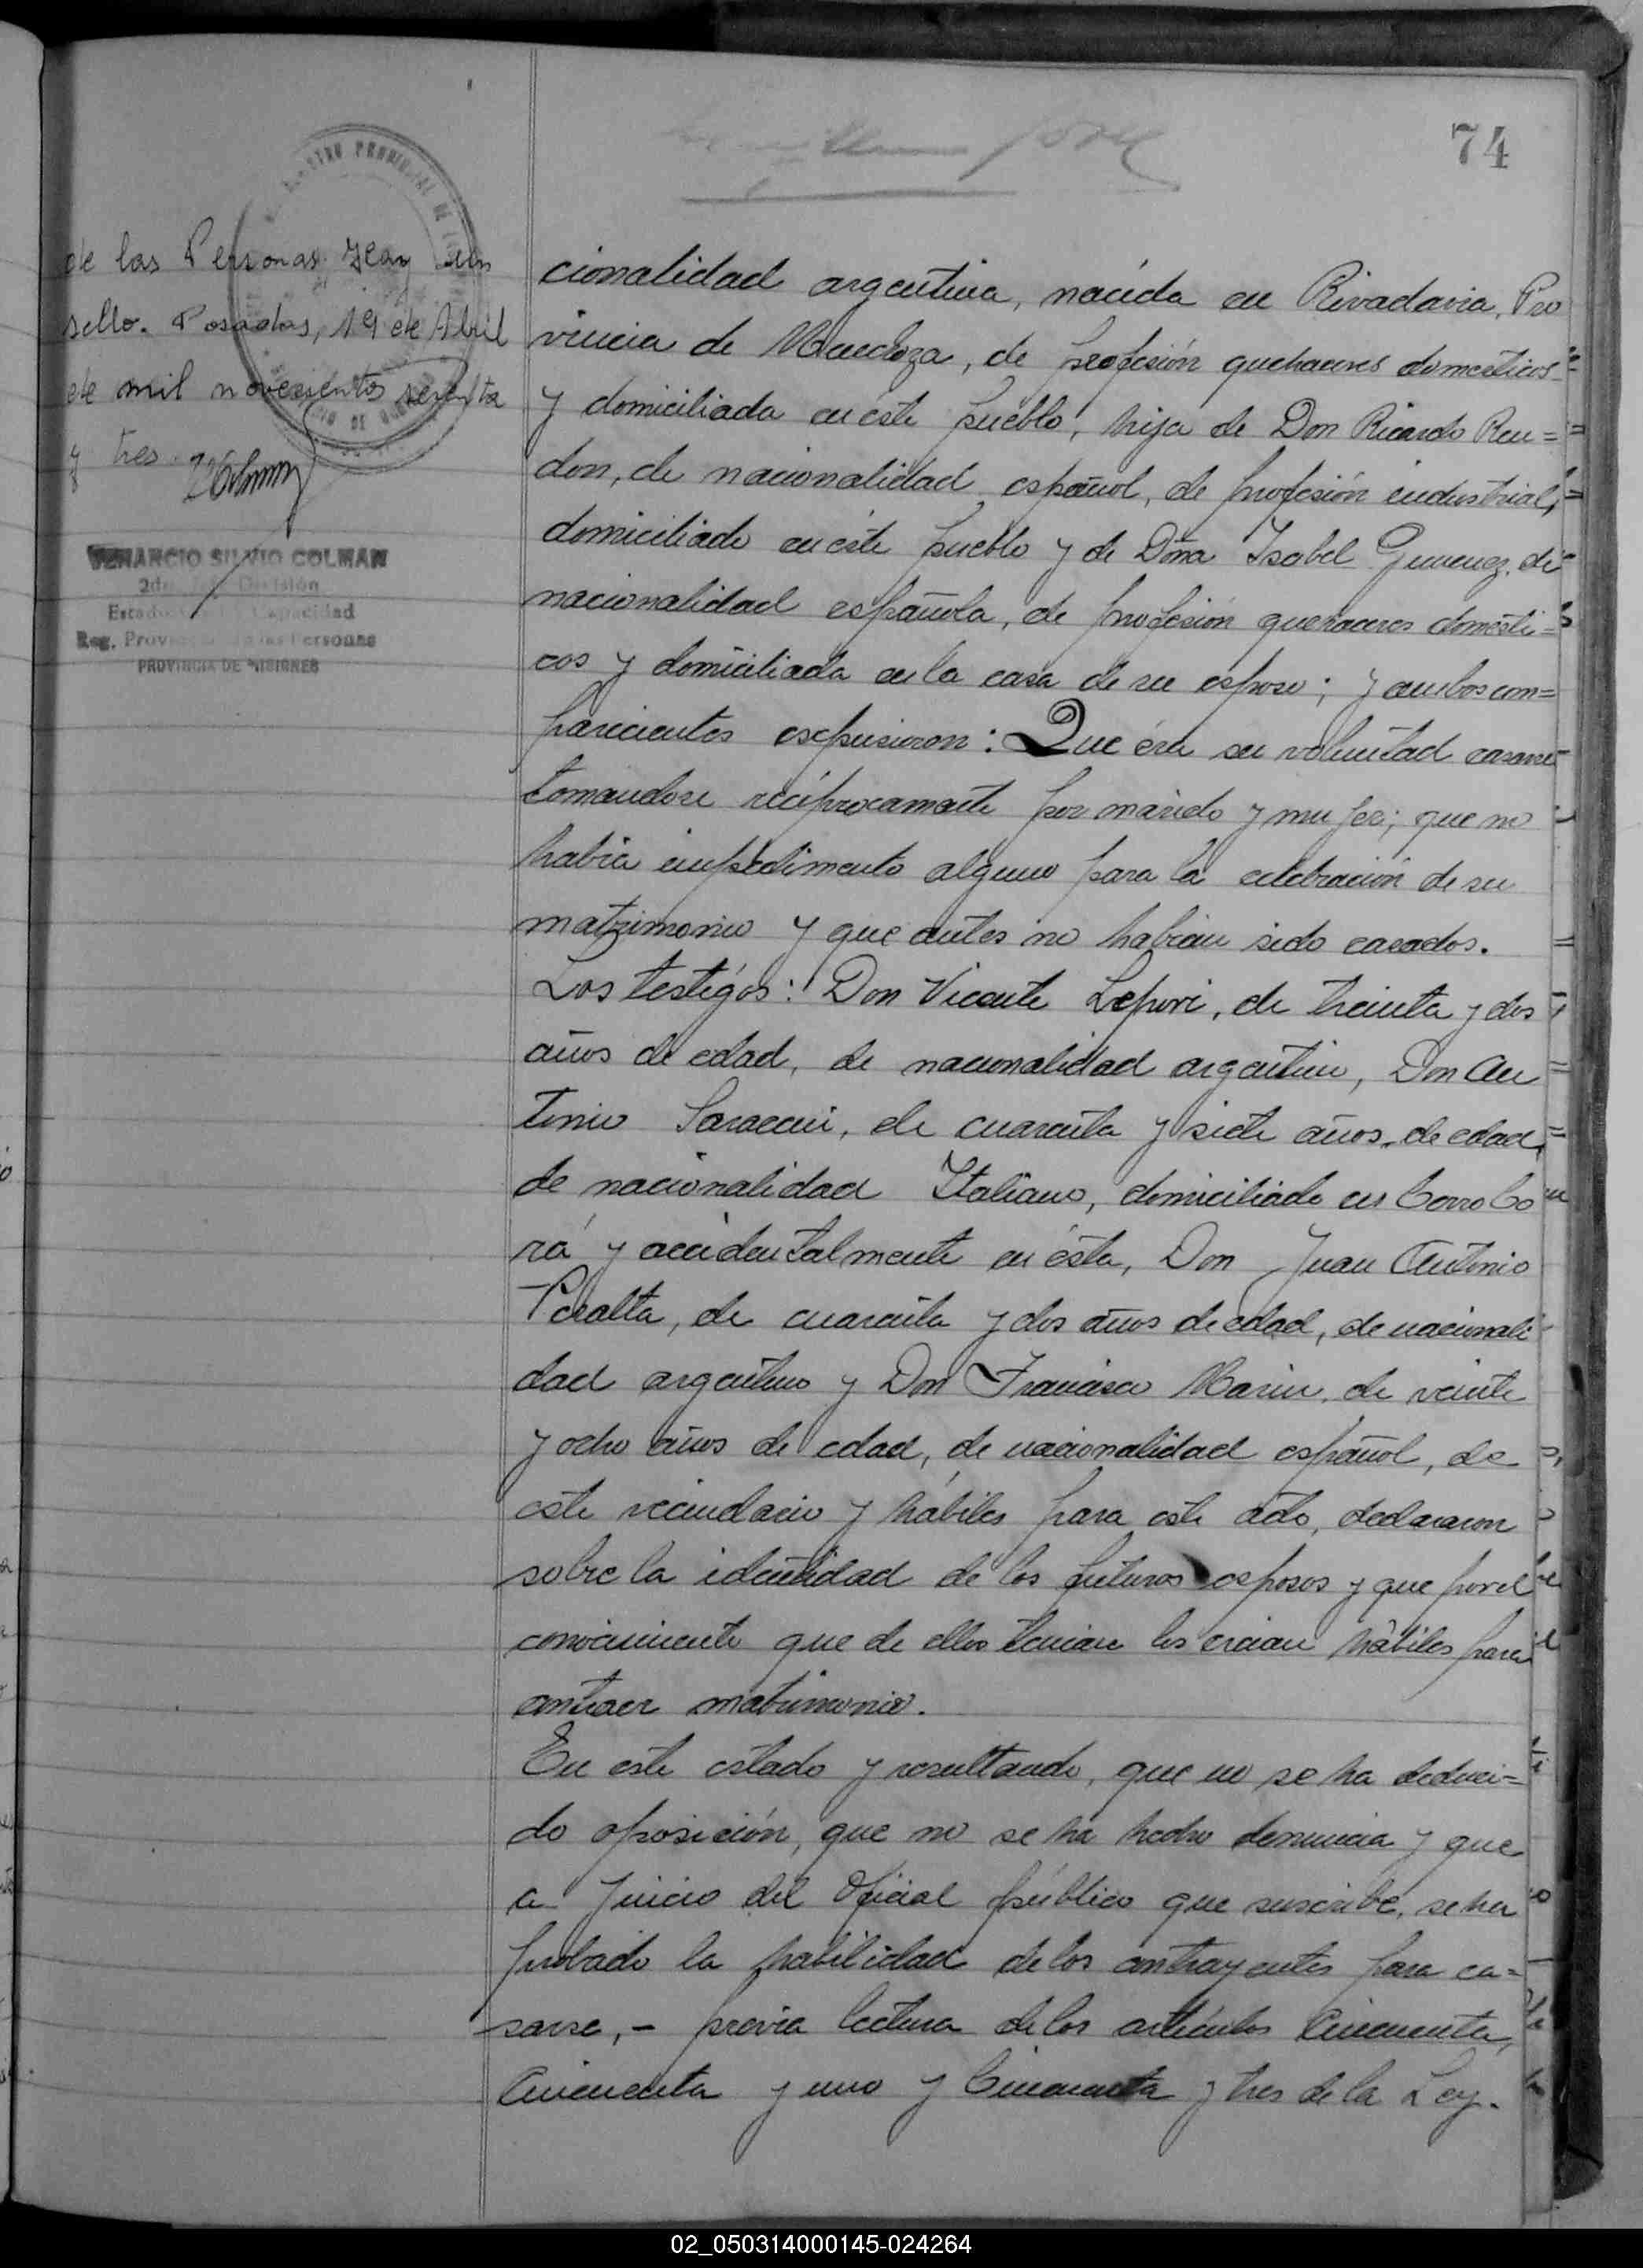 74
de las Personas. Hay un
sello. Posadas, 19 de Abril
de mil novecientos setenta
y tres.
VENANCIO SILVIO COLMAN
2do. Jefe División
Estado y Capacidad
Reg. Provincial de las Personas
PROVINCIA DE MISIONES
cionalidad argentina, nacida en Rivadavia, Pro
vincia de Mendoza, de profesión quehaceres domesticos
y domiciliada en éste pueblo, hija de Don Ricardo Ren=
don, de nacionalidad español, de profesión industrial,
domiciliado en éste pueblo y de Doña Isabel Gimenez, de
nacionalidad española, de profesión quehaceres domésti=
cos y domiciliada en la casa de su esposo; y ambos com=
parecientes expusieron: Que éra su voluntad casarse
tomandose recíprocamente por marido y mujer; que no
había impedimento alguno para la celebración de su
matrimonio y que antes no habian sido casados.
Los testigos: Don Vicente Lepori, de treinta y dos
años de edad, de nacionalidad argentino, Don An
tonio Saraceni, de cuarenta y siete años de edad,
de nacionalidad Italiano, domiciliado en Cerro Co
rá y accidentalmente en ésta, Don Juan Antonio
Peralta, de cuarenta y dos años de edad, de nacionali
dad argentino y Don Francisco Marin, de veinte
y ocho años de edad, de nacionalidad español, de
este vecindario y hábiles para este acto, declararon
sobre la identidad de los futuros esposos y que por el
conocimiento que de ellos tenian los creian hábiles para
contraer matrimonio.
En este estado y resultando, que no se ha deduci=
do oposición, que no se ha hecho denuncia y que
a juicio del Oficial público que suscribe, se ha
probado la habilidad de los contrayentes para ca=
sarse,- previa lectura de los artículos Cincuenta,
Cincuenta y uno y Cincuenta y tres de la Ley.
02_050314000145-024264